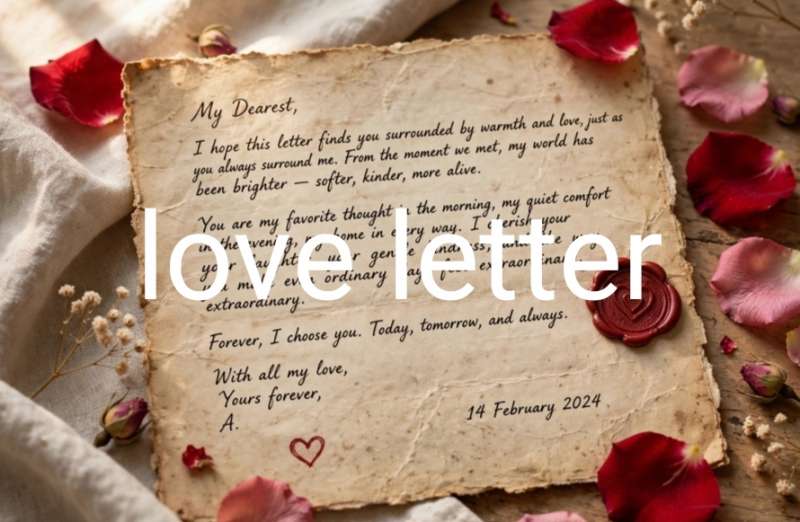 My Dearest,
I hope this letter finds you surrounded by warmth and love, just as
you always surround me. From the moment we met, my world has
been brighter — softer, kinder, more alive.
You are my favorite thought in the morning, my quiet comfort
in the evening, my home in every way. I cherish your
your gentle
you even ordinary extraordinary
extraordinary.
love letter
Forever, I choose you. Today, tomorrow, and always.
With all my love,
Yours forever,
A.
14 February 2024